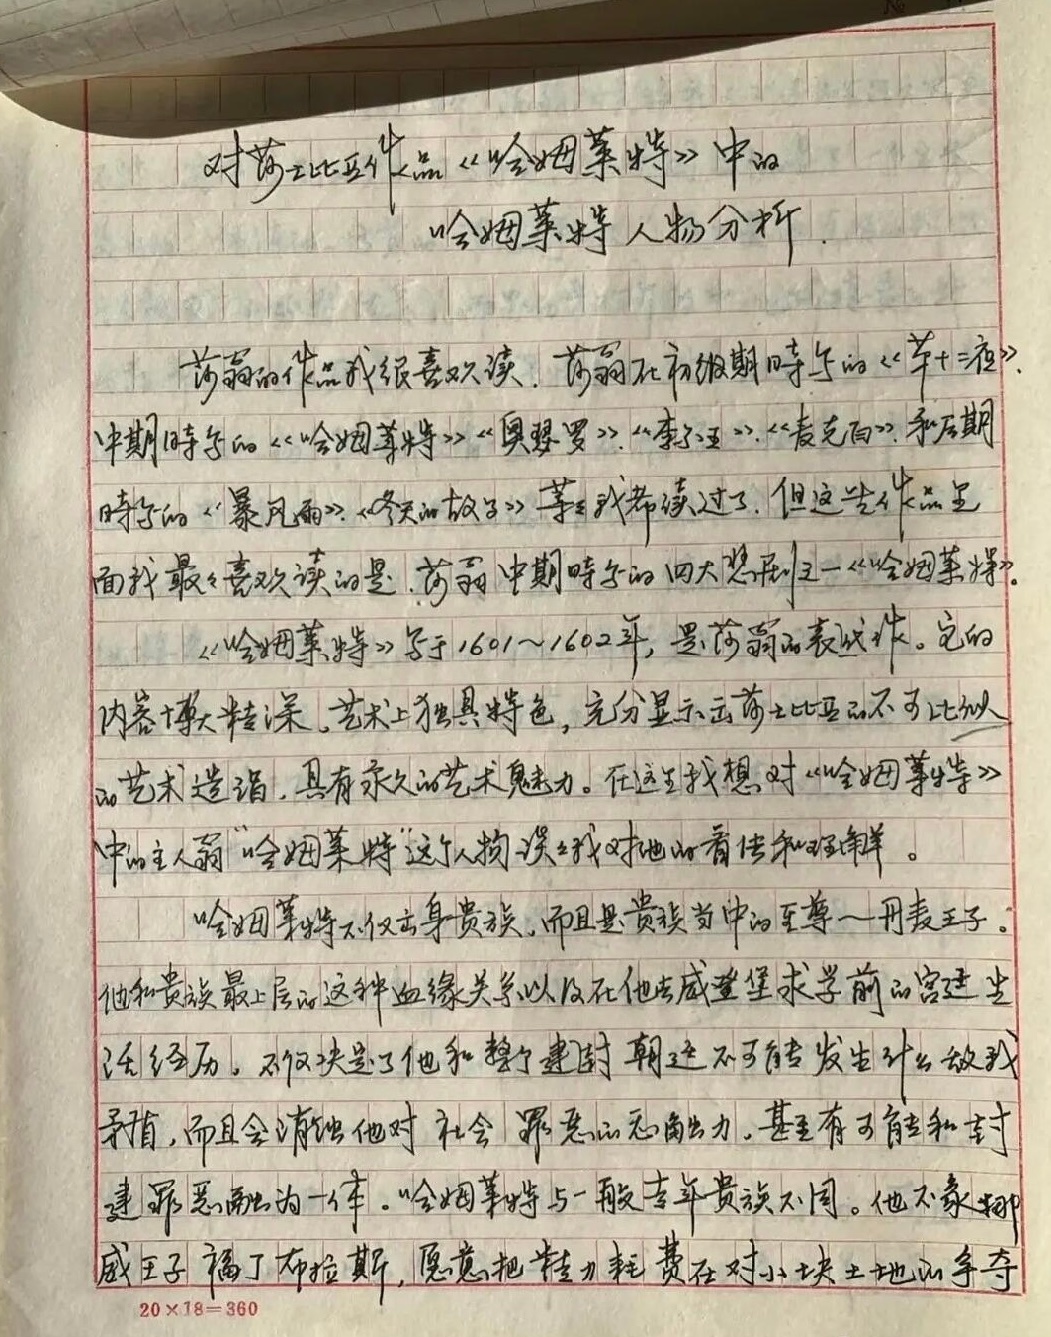 对莎士比亚作品《哈姆莱特》中的
哈姆莱特人物分析.
莎翁的作品我很喜欢读.莎翁在初级期時写的《第十二夜》.
中期時写的《哈姆莱特》《奥瑟罗》.《李尔王》.《麦克白》.和后期
時写的《暴风雨》.《冬天的故事》等等我都读过了.但这些作品里
面我最最喜欢读的是.莎翁中期時写的四大悲剧之一《哈姆莱特》。
《哈姆莱特》写于1601～1602年,是莎翁的代表作。它的
内容博大精深、艺术上独具特色,充分显示出莎士比亚的不可比似
的艺术造诣.具有永久的艺术魅力。在这里我想对《哈姆莱特》
中的主人翁"哈姆莱特"这个人物谈谈我对他的看法和理解。
哈姆莱特不仅出身贵族、而且是贵族当中的至尊—丹麦王子。
他和贵族最上层的这种血缘关系以及在他去威登堡求学前的宫廷生
活经历。不仅决定了他和整个建封朝廷不可能发生什么敌我
矛盾,而且会消蚀他对社会罪恶的 力.甚至有可能和封
建罪恶融为一体。哈姆莱特与一般青年贵族不同。他不象挪
威王子福丁布拉斯,愿意把精力耗费在对小块土地的争夺
20×18=360